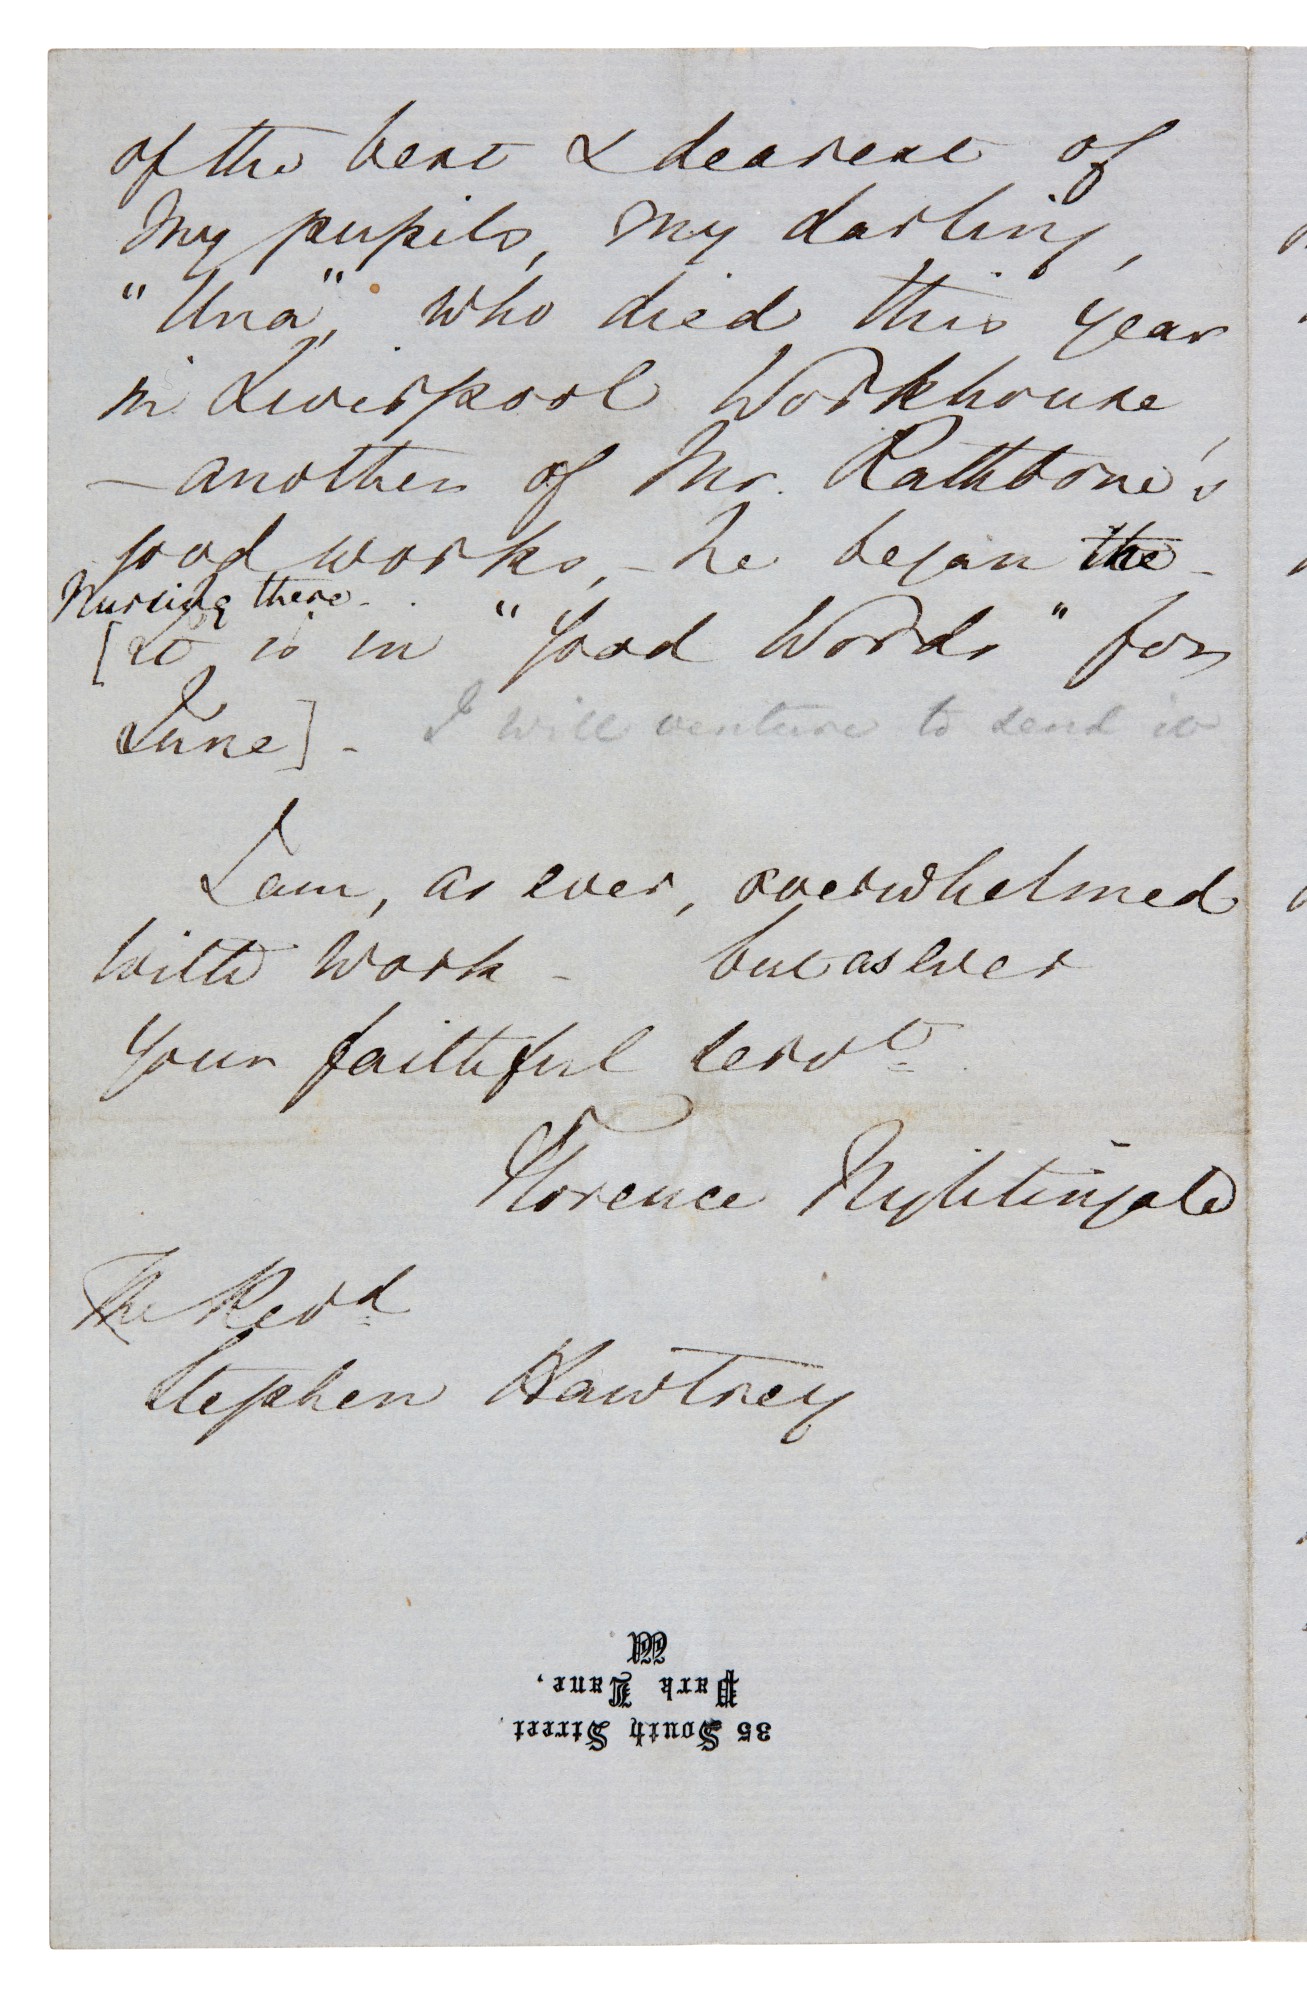 of the best & dearest of
my pupils, my darling,
"Una", who died this year
in Liverpool Workhouse
— another of Mr. Rathbone's
good works, - he began the -
Nursing there - .
[It is in "Good Words" for
June] - I will venture to send it
I am, as ever, overwhelmed
with work - but as ever
Your faithful servt.
Florence Nightingale
The Revd.
Stephen Hawtrey
35 South Street,
Park Lane,
W